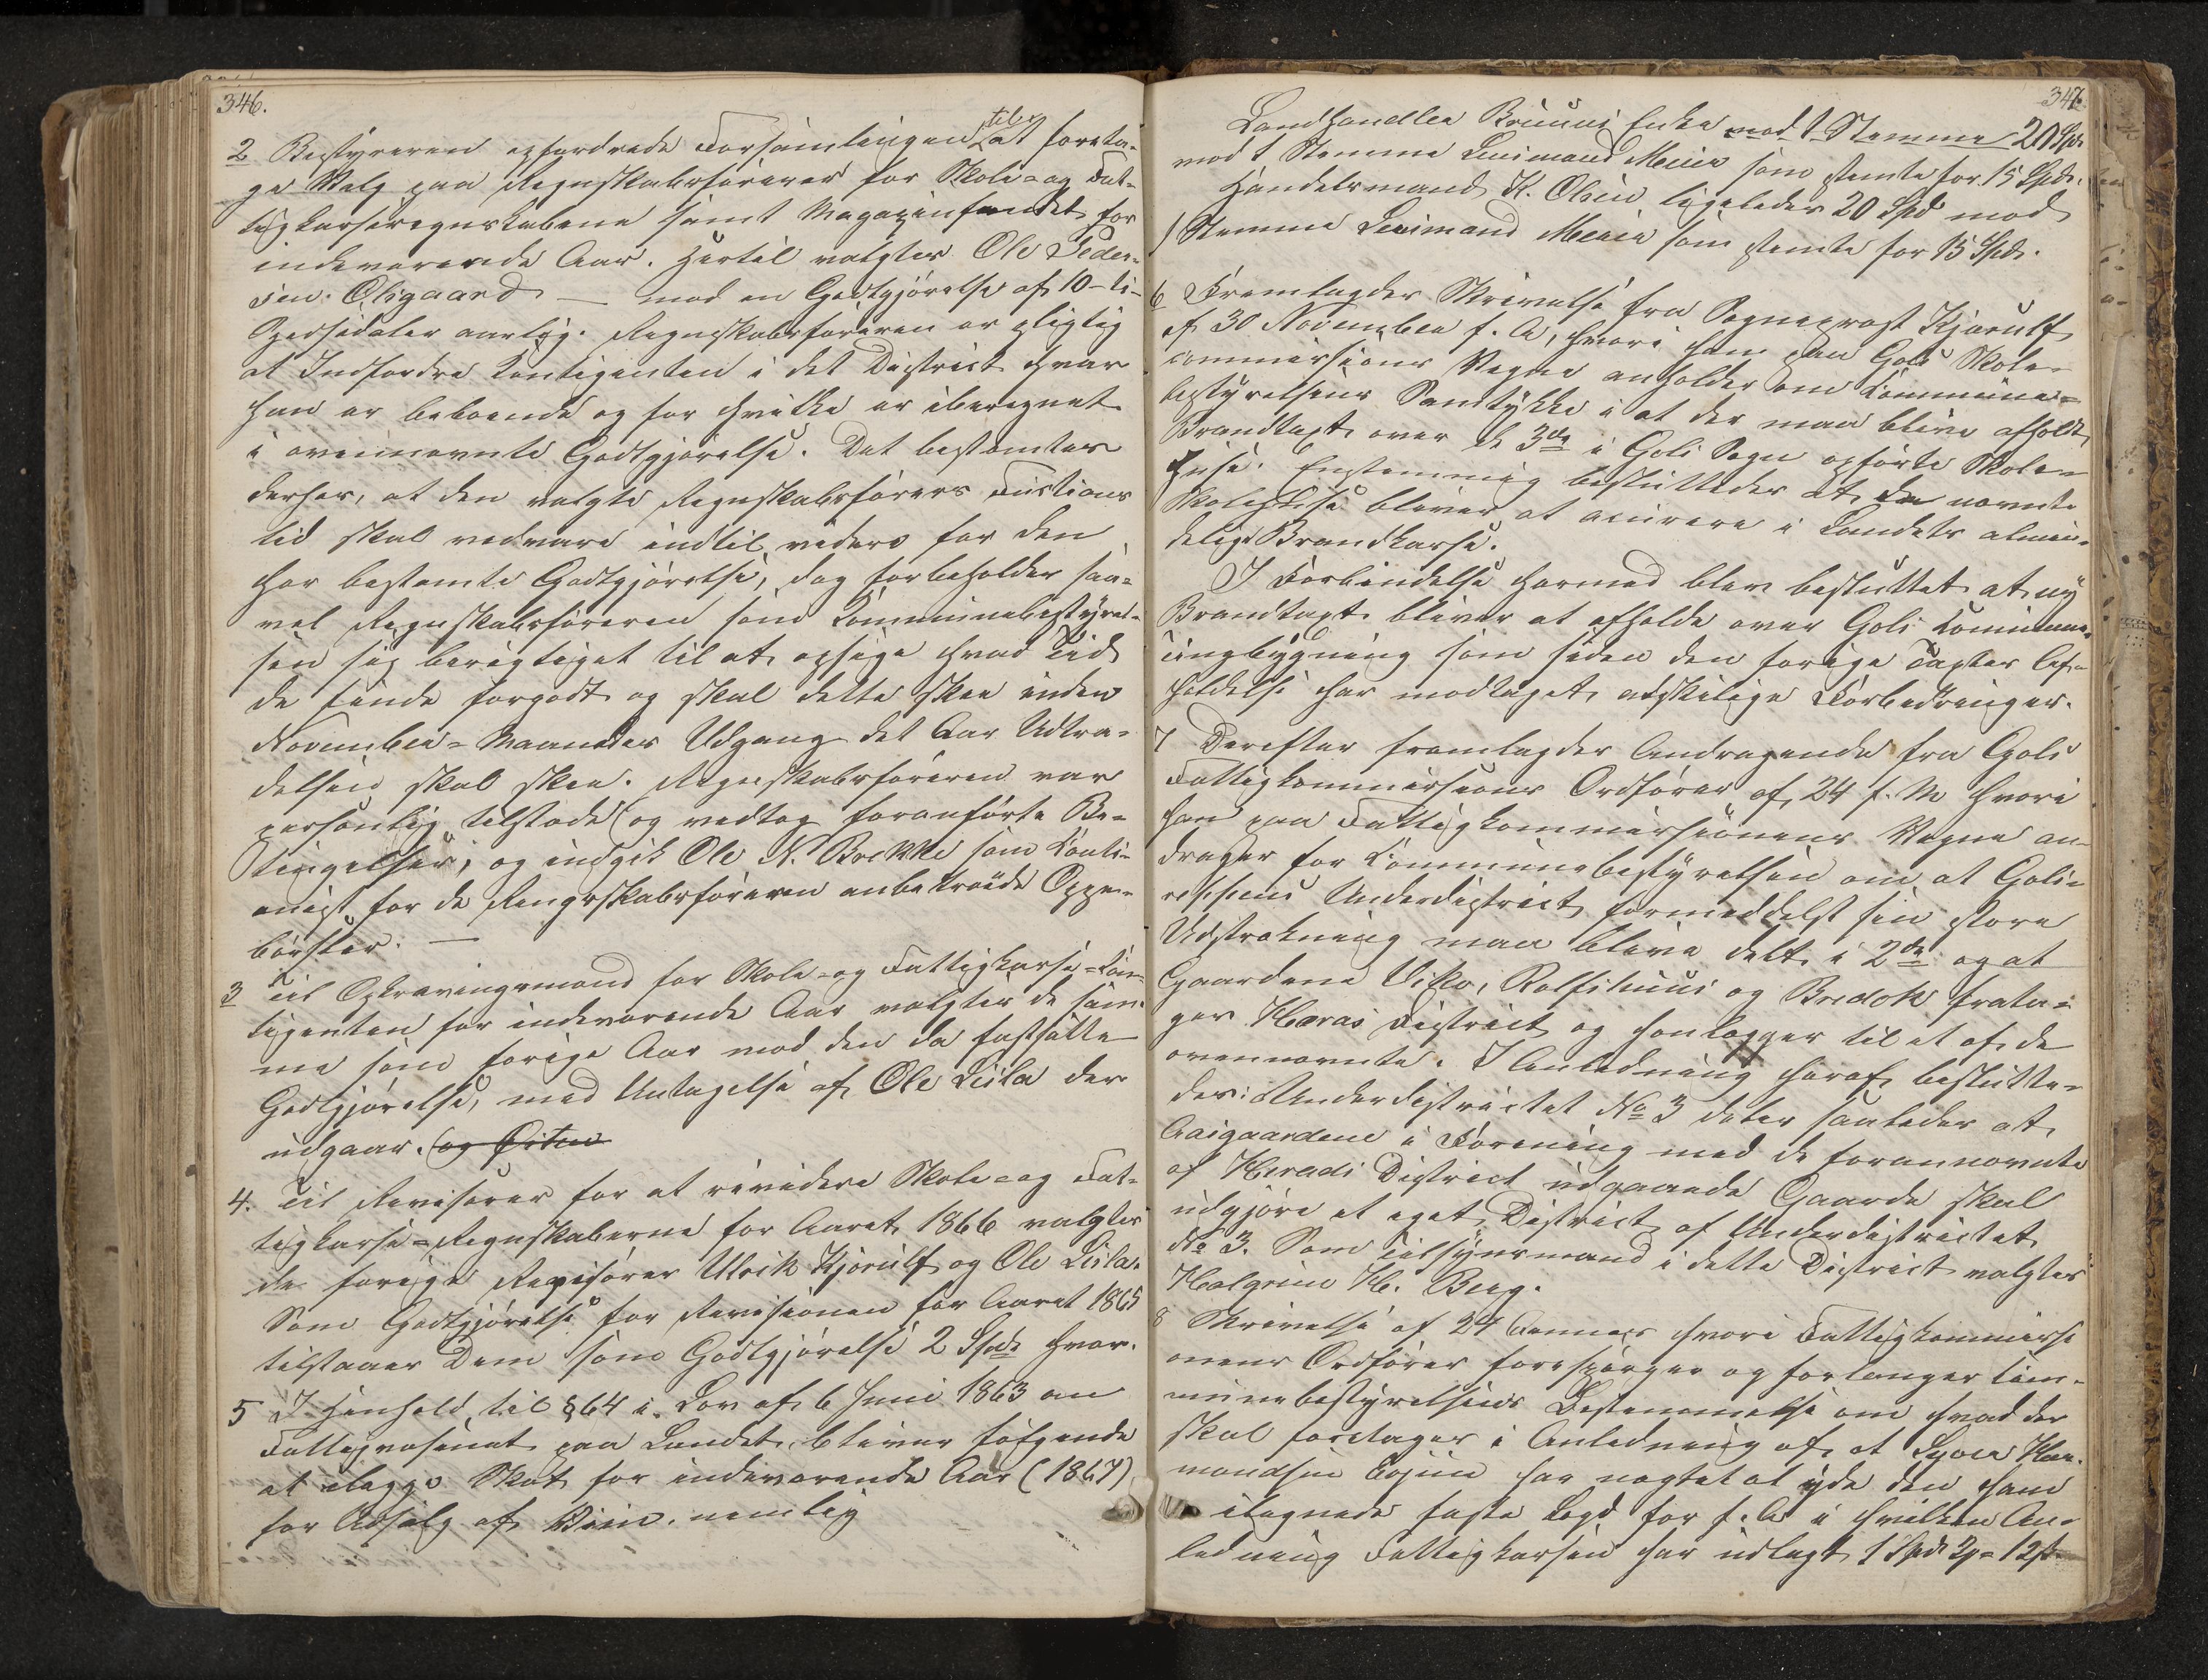 346.
2 Bestyreren opfordrede Forsamlingen til at foreta-
ge Valg paa Regnskabsförerer for Skole- og Fat-
tigkasseregnskabene samt Magazinfondet for
indeværende Aar. Hertil valgtes Ole Peder-
sen Öligaard — mod en Godtgjörelse af 10 - ti-
Speciedaler aarlig. Regnskabsföreren er pligtig
at Indfordre Contigenten i det District hvor
han er beboende og for hvilke er iberegnet
i ovennævnte Godtgjörelse. Det bestemtes
derhos, at den valgte Regnskabsförers Functions
tid skal vedvare indtil videre for den
her bestemte Godtgjörelse, dog forbeholder saa-
vel Regnskabsföreren som Kommunebestyrel-
sen sig berigtiget til at opsige hvad Tid
de finde forgodt og skal dette skee inden
November-Maaneds Udgang det Aar Udtræ-
delsen skal skee. Regnskabsföreren var
personlig tilstede og vedtog foranförte Be-
tingelser, og indgik Ole N. Brekke som Kauti-
onist for de Regnskabsföreren anbetroede Oppe-
börsler. —
3 Til Opkrævingsmænd for Skole- og Fattigkasse-Con-
tigenten for indeværende Aar valgtes de sam-
me som forige Aar mod den da fastsatte
Godtgjörelse, med Untagelse af Ole Lisla der
udgaar. og Örten
4. Til Revisorer for at revidere Skole- og Fat-
tigkasse-Regnskaberne for Aaret 1866 valgtes
de forige Revisorer Ulrik Kjerulf og Ole Lisla.
Som Godtgjörelse for Revisionen for Aaret 1865
tilstaaes Dem som Godtgjörelse 2 Spd hver.
5 I Henhold til § 64 i Lov af 6 Juni 1863 om
Fattigvæsenet paa Landet, bliver fölgende
at ilægge Skat for indeværende Aar (1867)
for Udsalg af Viin. nemlig
347.
Landhandler Bruuns Enke mod 1 Stemme 20 Spd.
mod 1 Stemme Lensmand Meier som stemte for 15 Spd.
Handelsmand K. Olsen ligeledes 20 Spd mod
1 Stemme Lensmand Meier som stemte for 15 Spd.
6 Fremlagdes Skrivelse fra Sogneprest Kjerulf
af 30 November f. A, hvori han paa Gols Skole-
commissions Vegne anholder om Kommune-
bestyrelsens Samtykke i at der maa blive afholdt
Brandtaxt over de 3de i Gols Sogn opförte Skole-
huse. Enstemmig besluttedes at de nævnte
Skolehuse bliver at assurere i Landets almin-
delige Brandkasse.
I Forbindelse hermed blev besluttet at ny
Brandtaxt bliver at afholde over Gols Kommune-
tingbygning som siden den forige Taxtes Af-
holdelse har modtaget adskilige Forbedringer.
7 Derefter fremlagdes Andragende fra Gols
Fattigkommissions Ordförer af 24 f. M hvori
han paa Fattigkommissionens Vegne an-
drager for Kommunebestyrelsen om at Gols-
Underdistrict formeddelst sin store
Udstrekning maa blive delt i 2de og at
Gaardene Viko, og Bredok frata-
ges Heras District og henlægges til et af de
ovennævnte. I Anledning heraf beslutte-
des: Underdistrictet No 3 deles saaledes at
Aasgaardene i Forening med de forannævnte
af Herads District udgaaede Gaarde skal
udgjöre et eget District af Underdistrictet
No 3. Som Tilsynsmand i dette District valgtes
Halgrim H. Berg.
8 Skrivelse af 24 hvori Fattigkommissi
onens Ordförer forespörger og forlanger Com-
munebestyrelsens Bestemmelse om hvad der
skal foretages i Anledning af at
har nægtet at yde den ham
ilagnede faste Legd for f. A i hvilken An-
ledning Fattigkassen har udlagt 1 Spd